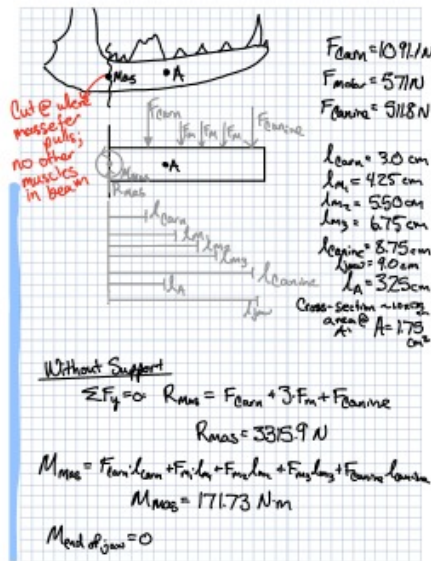 Mas
A
Cut @ where
masseter
pulls;
no other
muscles
in beam
F_carn = 1091.1 N
F_molar = 571 N
F_canine = 511.8 N
F_carn
F_m F_m F_m
F_canine
M_mas
A
R_mas
l_carn
l_m1
l_m2
l_m3
l_canine
l_A
l_jaw
l_carn = 3.0 cm
l_m1 = 4.25 cm
l_m2 = 5.50 cm
l_m3 = 6.75 cm
l_canine = 8.75 cm
l_jaw = 9.0 cm
l_A = 3.25 cm
Cross-section
area @
A: A = 1.75 cm²
Without Support
ΣF_y = 0: R_mas = F_carn + 3·F_m + F_canine
R_mas = 3315.9 N
M_mas = F_carn·l_carn + F_m·l_m1 + F_m2 l_m2 + F_m3 l_m3 + F_canine l_canine
M_mas = 171.73 N·m
M_end of jaw = 0